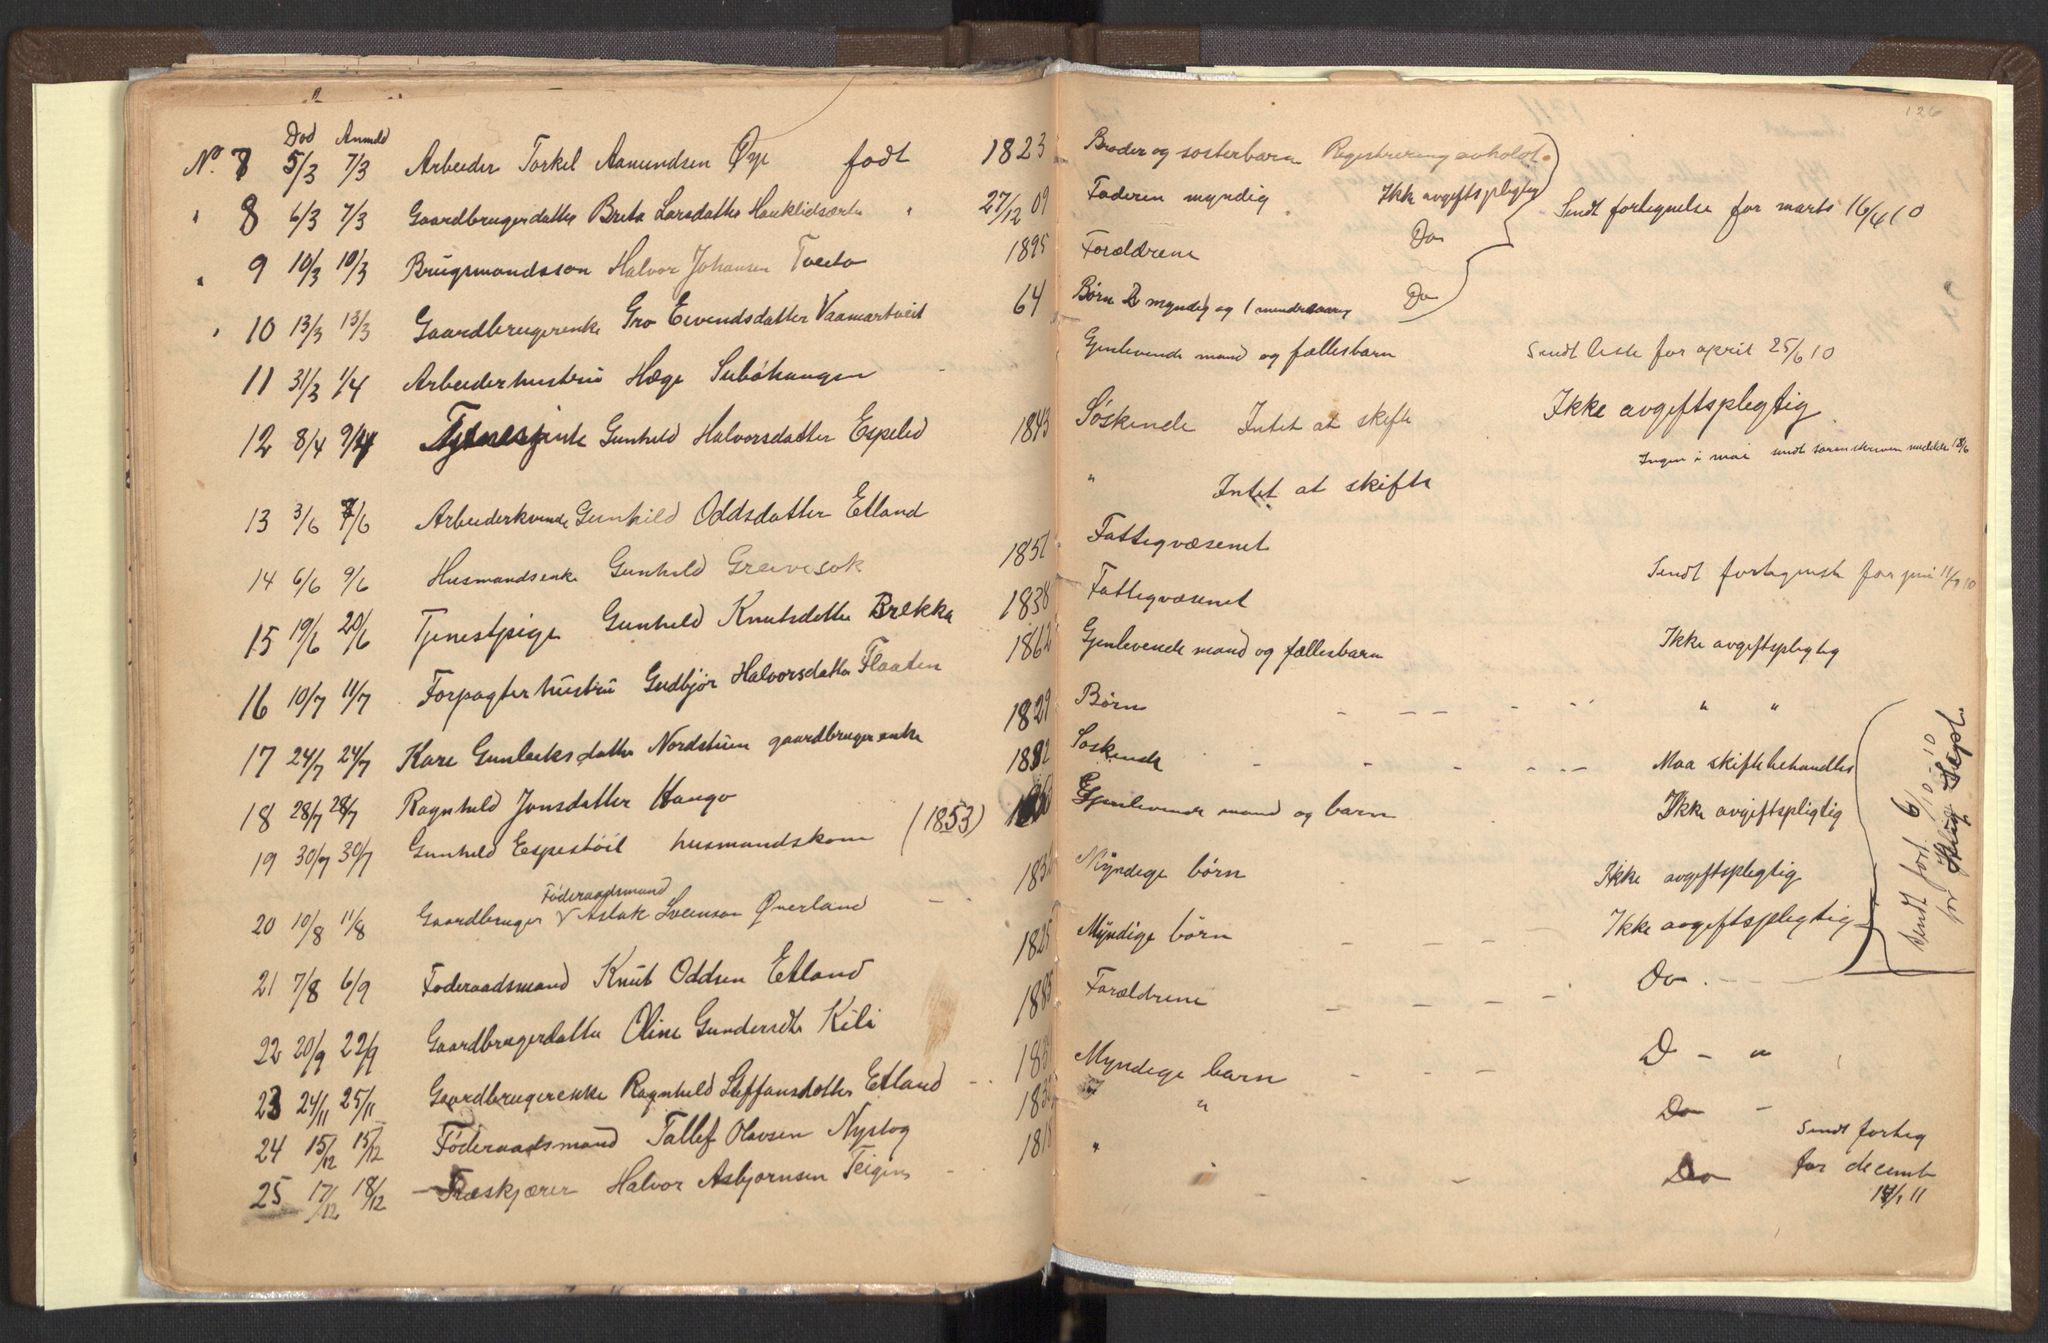 126
Død Anmeld
No. 7 5/3 7/3 Arbeider Torkel Aamundsen Øye født 1823 Broder og sosterbarn Registrering avholdt.
" 8 6/3 7/3 Gaardbrugerdatter Brita Larsdatter " 27/12 09 Faderen myndig Ikke avgiftspligtig Sendt fortegnelse for marts 16/4 10
" 9 10/3 10/3 Brugsmandsson Halvor Johansen Tveito 1895 Forældrene Do
" 10 13/3 13/3 Gaardbrugerenke Gro Eivendsdatter Vaamartveit 64 Børn 2 myndig og 1 mindreaarig Do
11 31/3 1/4 Arbeiderhustru Hæge Gjenlevende mand og fællesbarn Sendt liste for april 25/6 10
12 8/4 9/4 Tjenestjente Gunhild Halvorsdatter Espelid 1843 Søskende Intet at skifte Ikke avgiftspligtig
Ingen i mai sendt sorenskriveren
13 3/6 7/6 Arbeiderkvinde Gunhild Oddsdatter Etland " Intet at skifte
14 6/6 9/6 Husmandsenke Gunhild Greivesok 1851 Fattigvæsenet
Sendt fortegnelse for juni 11/7 10
15 19/6 20/6 Tjenestpige Gunhild Knutsdatter Brekka 1838 Fattigvæsenet
16 10/7 11/7 Forpagterhustru Gudbjør Halvorsdatter Flaaten 1862 Gjenlevende mand og fællesbarn Ikke avgiftspligtig
17 24/7 24/7 Kari Gunleiksdatter Nordstuen gaardbrugerenke 1829 Børn - - - - " "
18 28/7 28/7 Ragnhild Jonsdatter Haugo 1882 Soskende - - - - Maa skiftebehandles
19 30/7 30/7 Gunhild Espestøil husmandskone (1853) Gjenlevende mand og barn Ikke avgiftspligtig
Føderaadsmand
20 10/8 11/8 Gaardbruger V Aslak Sveinson Øverland - Myndige børn Ikke avgiftspligtig
21 7/8 6/9 Foderaadsmand Knut Oddsen Etland 1825 Myndige børn - - - Ikke avgiftspligtig
sendt fort. 6/10 10
for Sept.
22 20/9 22/9 Gaardbrugerdatter Oline Gundersdtr Kili 1885 Forældrene - - - - Do - -
23 24/11 25/11 Gaardbrugerenke Ragnhild Steffansdatter Etland - Myndige barn - - - - D - "
24 15/12 15/12 Føderaadsmand Tallef Olavsen Nystog " Do -
Sendt forteg
for decemb
11
25 17/12 18/12 - Træskjærer Halvor Asbjørnsen Teigen - 1818 " Do